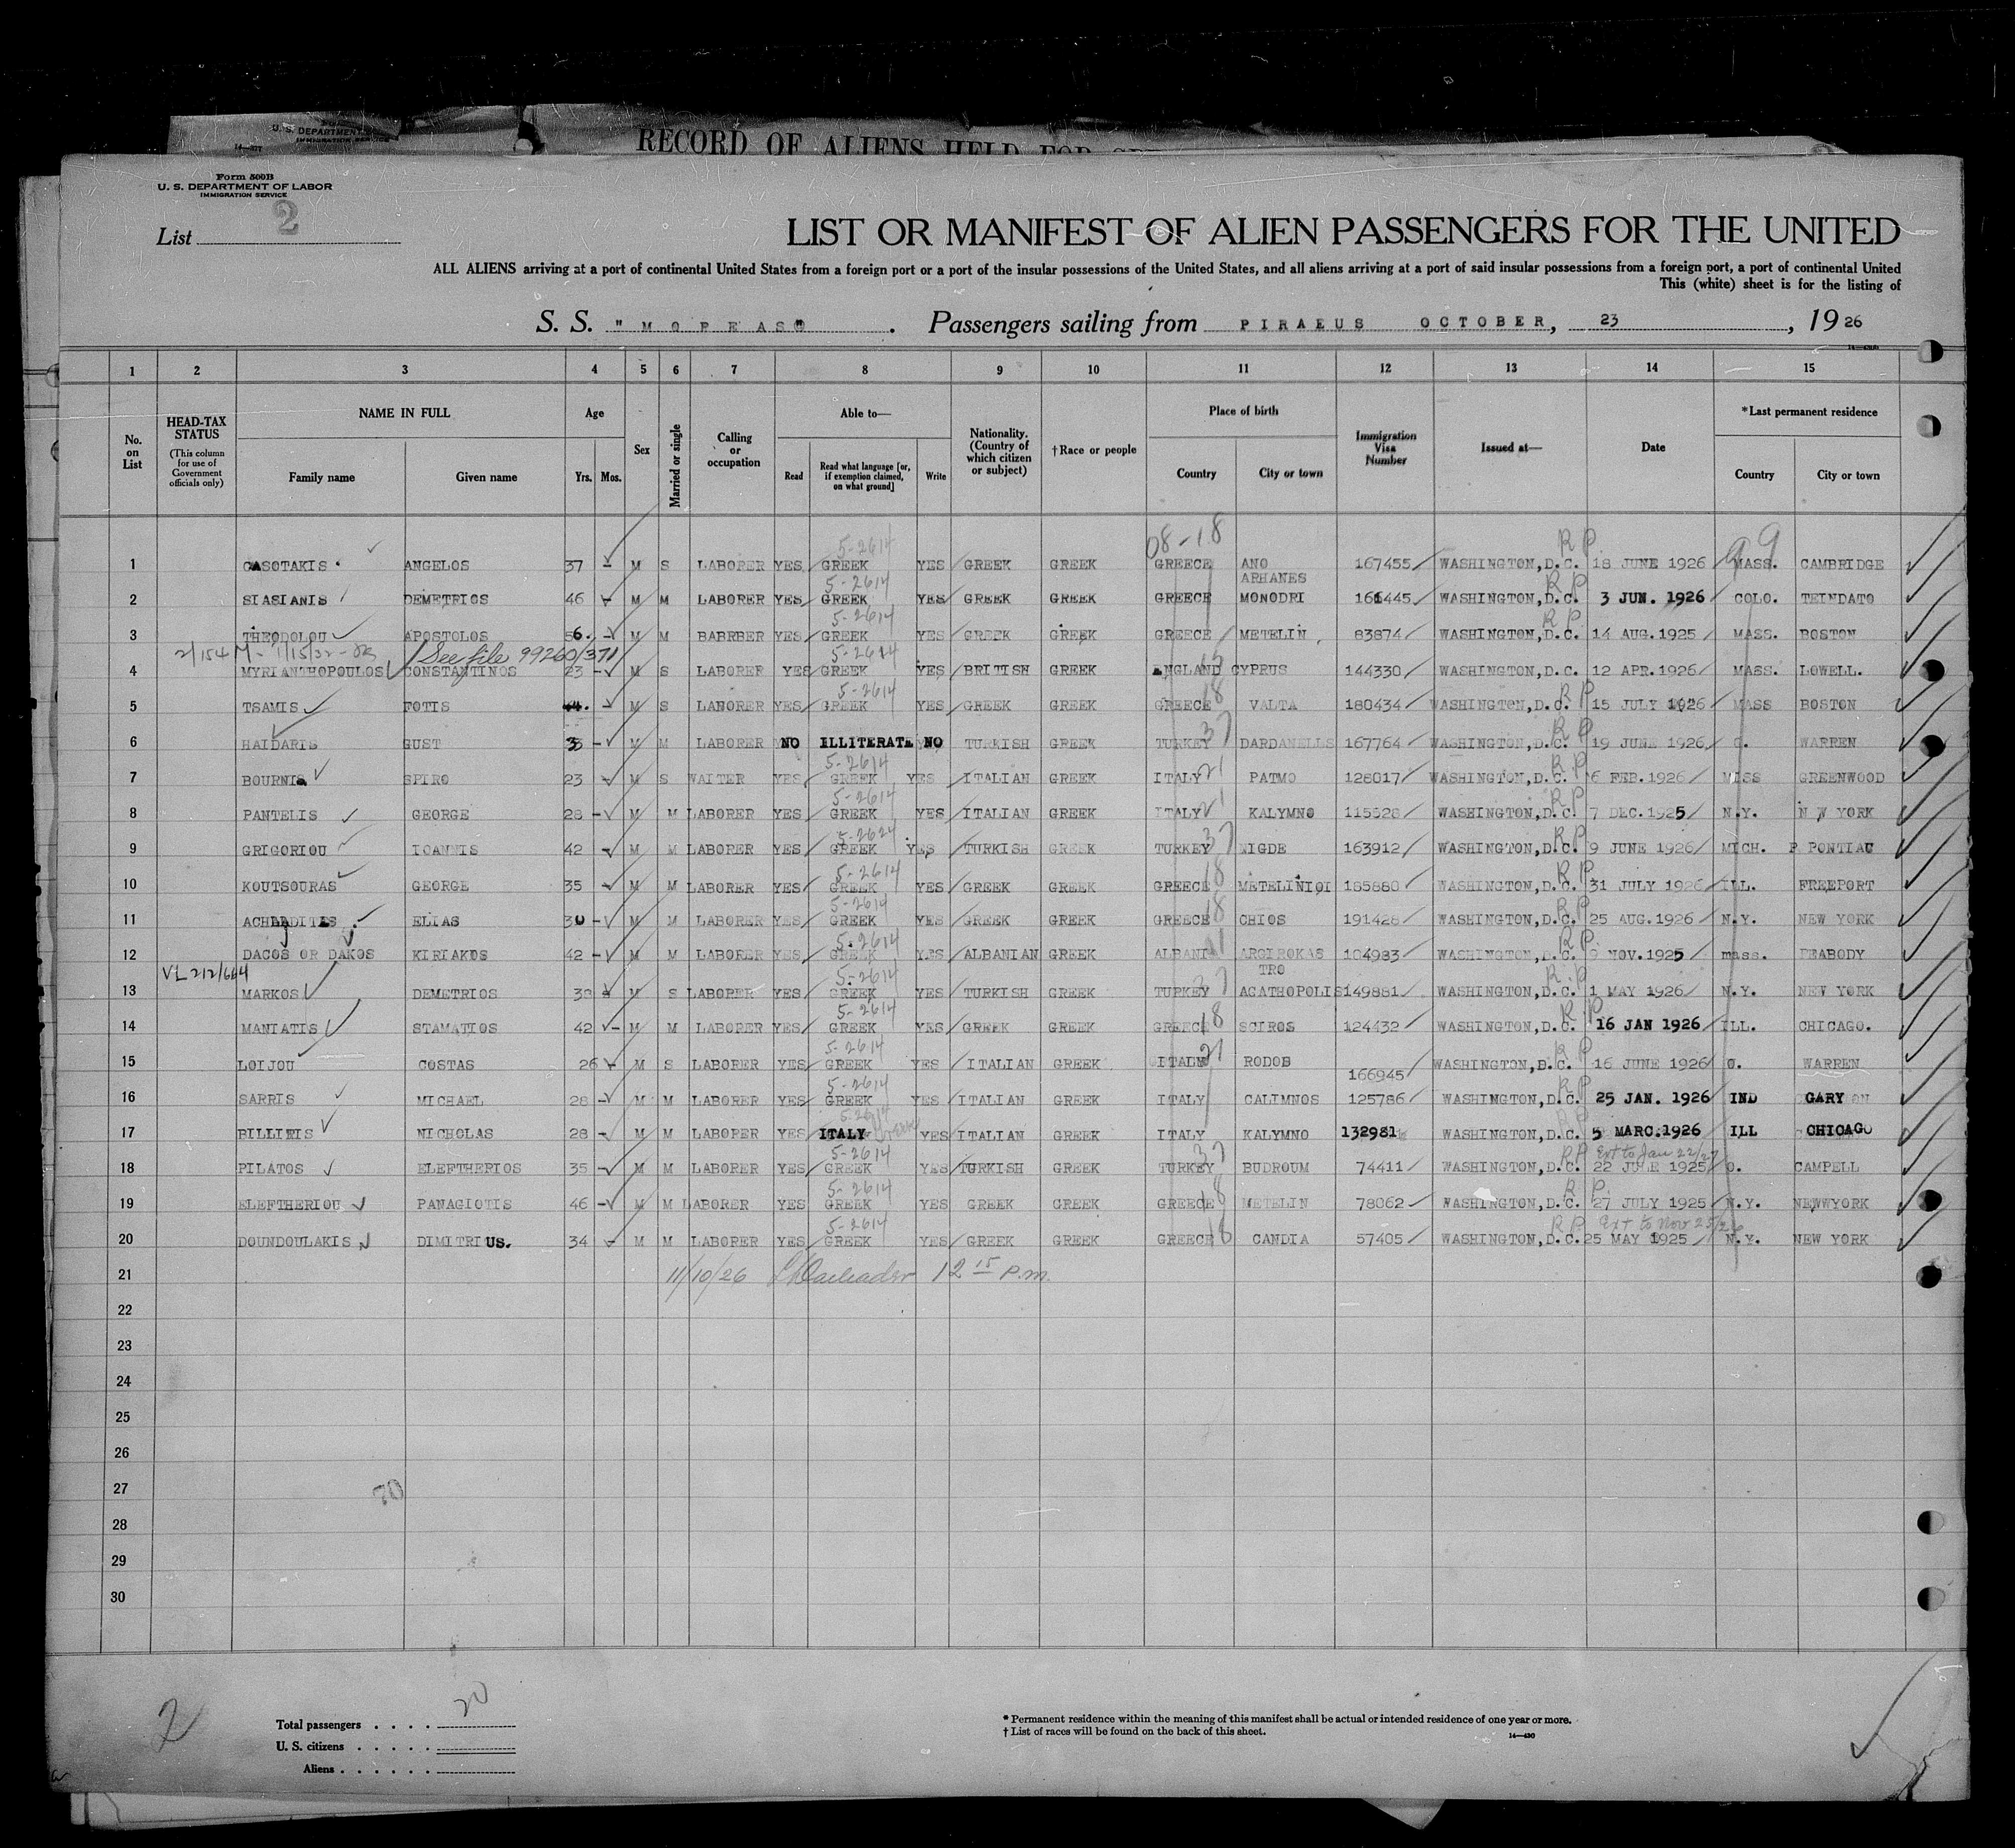 U. S. DEPARTMENT
IMMIGRATION SERVICE
RECORD OF ALIENS HELD FOR
Form 500B
U. S. DEPARTMENT OF LABOR
IMMIGRATION SERVICE
List 2
LIST OR MANIFEST OF ALIEN PASSENGERS FOR THE UNITED
ALL ALIENS arriving at a port of continental United States from a foreign port or a port of the insular possessions of the United States, and all aliens arriving at a port of said insular possessions from a foreign port, a port of continental United
This (white) sheet is for the listing of
S. S. "MOREAS" . Passengers sailing from PIRAEUS OCTOBER, 23 , 19 26
1 2 3 4 5 6 7 8 9 10 11 12 13 14 15
No. on List HEAD-TAX STATUS (This column for use of Government officials only) NAME IN FULL Family name Given name Age Yrs. Mos. Sex Married or single Calling or occupation Able to— Read Read what language [or, if exemption claimed, on what ground] Write Nationality. (Country of which citizen or subject) †Race or people Place of birth Country City or town Immigration Visa Number Issued at— Date *Last permanent residence Country City or town
08-18 R P 99
5-2614
1 CASOTAKIS ANGELOS 37 - M S LABORER YES GREEK YES GREEK GREEK GREECE ANO ARHANES 167455 WASHINGTON, D.C. 18 JUNE 1926 MASS. CAMBRIDGE
5-2614 R P
2 SIASIANIS DEMETRIOS 46 - M M LABORER YES GREEK YES GREEK GREEK GREECE MONODRI 161445 WASHINGTON, D.C. 3 JUN. 1926 COLO. TEINDATO
5-2614 R P
3 THEODOLOU APOSTOLOS 56. - M M BABRBER YES GREEK YES GREEK GREEK GREECE METELIN 83874 WASHINGTON, D.C. 14 AUG. 1925 MASS. BOSTON
See file 99260/371 5-2614 15
4 MYRIANTHOPOULOS CONSTANTINOS 23 - M S LABORER YES GREEK YES BRITISH GREEK ENGLAND CYPRUS 144330 WASHINGTON, D.C. 12 APR. 1926 MASS. LOWELL.
5-2614 18 R P
5 TSAMIS FOTIS 44. - M S LANORER YES GREEK YES GREEK GREEK GREECE VALTA 180434 WASHINGTON, D.C. 15 JULY 1926 MASS BOSTON
37 R P
6 HAIDARIS GUST - M M LABORER NO ILLITERATE NO TURKISH GREEK TURKEY DARDANELLS 167764 WASHINGTON, D.C. 19 JUNE 1926 O. WARREN
5-2614 21 R P
7 BOURNIS SPIRO 23 - M S WAITER YES GREEK YES ITALIAN GREEK ITALY PATMO 128017 WASHINGTON, D.C. 6 FEB. 1926 MISS GREENWOOD
5-2614 21 R P
8 PANTELIS GEORGE 28 - M M LABORER YES GREEK YES ITALIAN GREEK ITALY KALYMNO 115528 WASHINGTON, D.C. 7 DEC. 1925 N.Y. N W YORK
5-2624 37 R P
9 GRIGORIOU IOANNIS 42 - M M LABORER YES GREEK YES TURKISH GREEK TURKEY NIGDE 163912 WASHINGTON, D.C. 9 JUNE 1926 MICH. P PONTIAC
5-2614 18 R P
10 KOUTSOURAS GEORGE 35 - M M LABORER YES GREEK YES GREEK GREEK GREECE METELINIOI 185880 WASHINGTON, D.C. 31 JULY 1926 ILL. FREEPORT
5-2614 18 R P
11 ELIAS 30 - M M LABORER YES GREEK YES GREEK GREEK GREECE CHIOS 191428 WASHINGTON, D.C. 25 AUG. 1926 N.Y. NEW YORK
5-2614 R P
12 DACOS OR DAKOS KIRIAKOS 42 - M M LABORER YES GREEK YES ALBANIAN GREEK ALBANIA ARGIROKAS TRO 104983 WASHINGTON, D.C. 9 NOV. 1925 mass. PEABODY
VL 212/664 5-2614 37 R P
13 MARKOS DEMETRIOS 38 - M S LABORER YES GREEK YES TURKISH GREEK TURKEY AGATHOPOLIS 149881 WASHINGTON, D.C. 1 MAY 1926 N.Y. NEW YORK
5-2614 18 R P
14 MANIATIS STAMATIOS 42 - M M LABORER YES GREEK YES GREEK GREEK GREECE SCIROS 124432 WASHINGTON, D.C. 16 JAN 1926 ILL. CHICAGO.
5-2614 21 R P
15 LOIJOU COSTAS 26 - M S LABORER YES GREEK YES ITALIAN GREEK ITALY RODOS 166945 WASHINGTON, D.C. 16 JUNE 1926 O. WARREN
5-2614 R P
16 SARRIS MICHAEL 28 - M M LABORER YES GREEK YES ITALIAN GREEK ITALY CALIMNOS 125786 WASHINGTON, D.C. 25 JAN. 1926 IND GARY
5-2614 R P
17 BILLIRIS NICHOLAS 28 - M M LABORER YES ITALY YES ITALIAN GREEK ITALY KALYMNO 132981 WASHINGTON, D.C. 5 MARC. 1926 ILL CHICAGO
5-2614 37 R P Ext to Jan 22/27
18 PILATOS ELEFTHERIOS 35 - M M LABORER YES GREEK YES TURKISH GREEK TURKEY BUDROUM 74411 WASHINGTON, D.C. 22 JULE 1925 O. CAMPELL
5-2614 18 R P.
19 ELEFTHERIOU PANAGIOTIS 46 - M M LABORER YES GREEK YES GREEK GREEK GREECE METELIN 78062 WASHINGTON, D.C. 27 JULY 1925 N.Y. NEWYORK
5-2614 18 R P Ext to Nov 25/26
20 DOUNDOULAKIS DIMITRIUS. 34 - M M LABORER YES GREEK YES GREEK GREEK GREECE CANDIA 57405 WASHINGTON, D.C. 25 MAY 1925 N.Y. NEW YORK
21 11/10/26 12 15 P.m.
22
23
24
25
26
27 70
28
29
30
2
Total passengers . . . . 20
U. S. citizens . . . . .
Aliens . . . . . .
* Permanent residence within the meaning of this manifest shall be actual or intended residence of one year or more.
† List of races will be found on the back of this sheet.
14—430